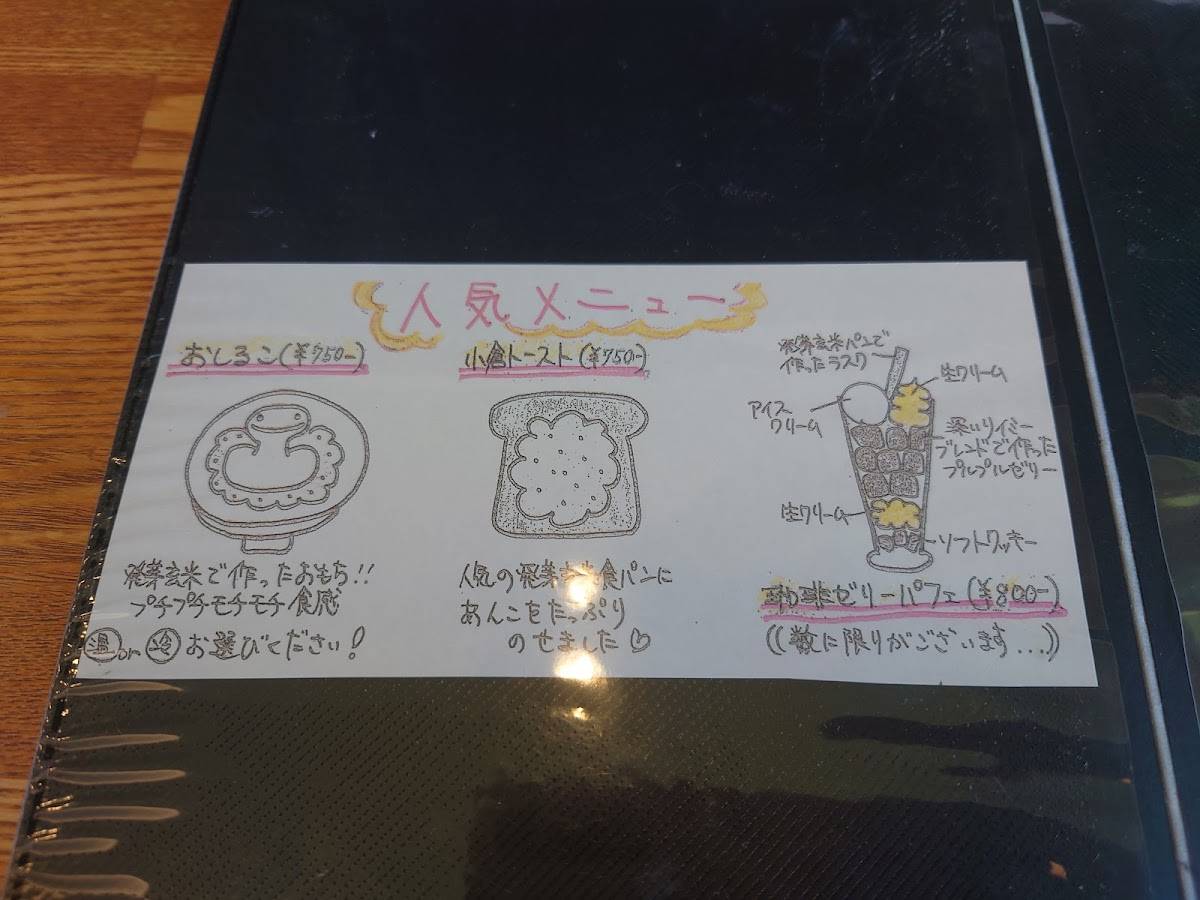 人気メニュー
おしるこ(¥750-)
発芽玄米で作ったおもち!!
プチプチモチモチ食感
温or冷お選びください!
小倉トースト(¥750-)
人気の発芽玄米食パンに
あんこをたっぷり
のせました♡
発芽玄米パンで
作ったラスク
生クリーム
アイス
クリーム
ブレンドで作った
プルプルゼリー
生クリーム
ソフトクッキー
珈琲ゼリーパフェ(¥800-)
((数に限りがございます...))